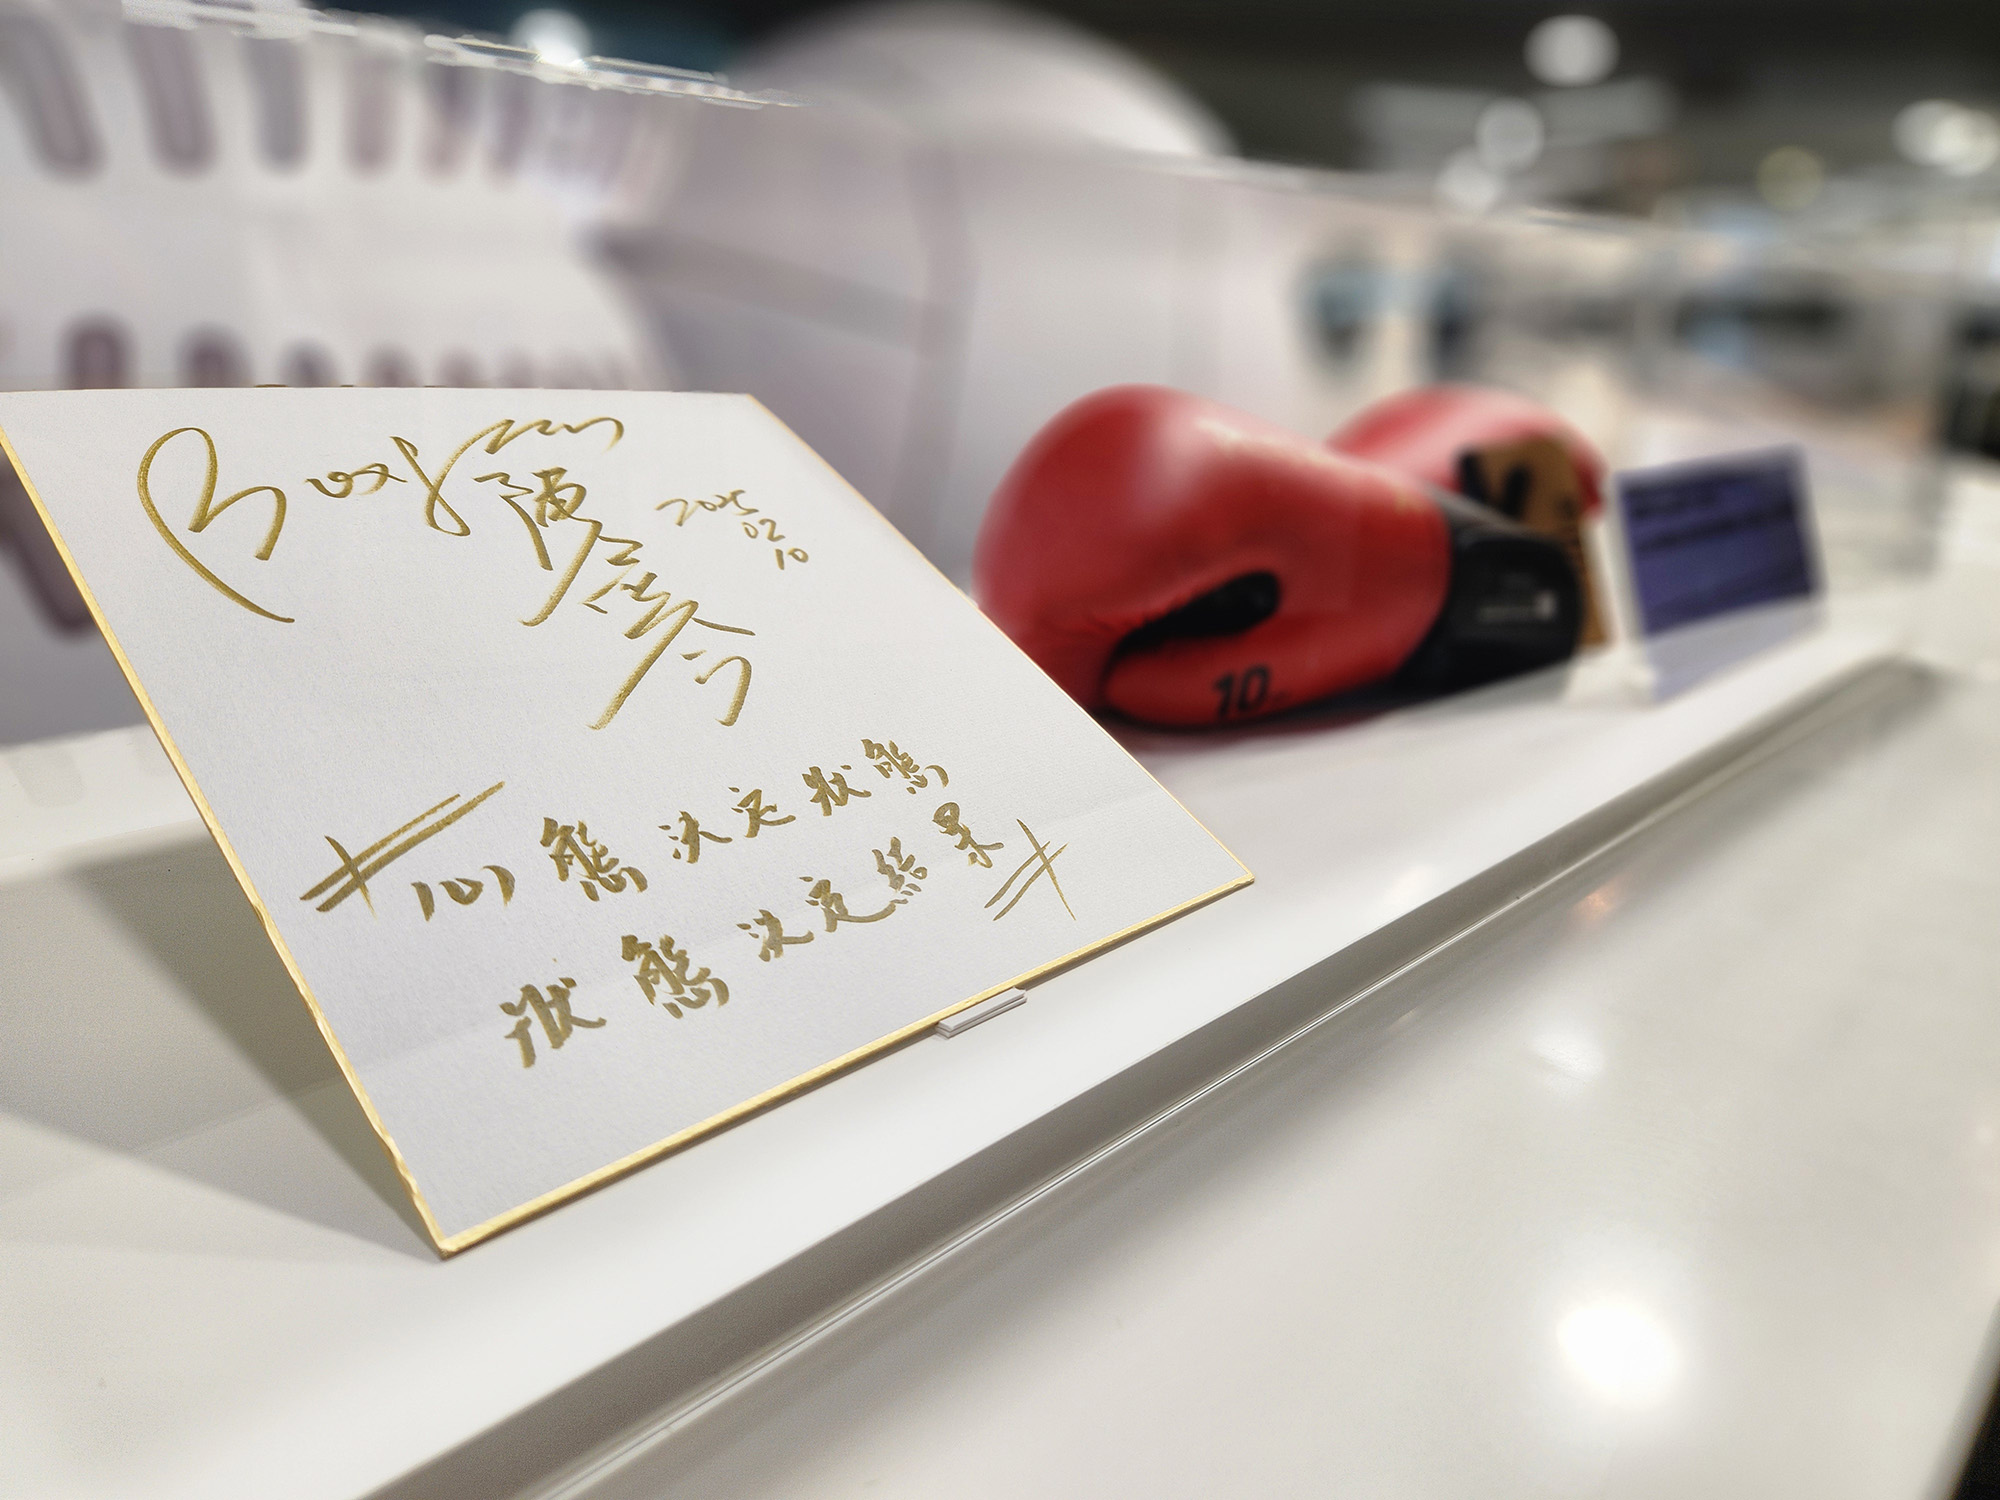 Boxing
陳念琴
2025
02
10
#心態決定狀態
狀態決定結果#
10